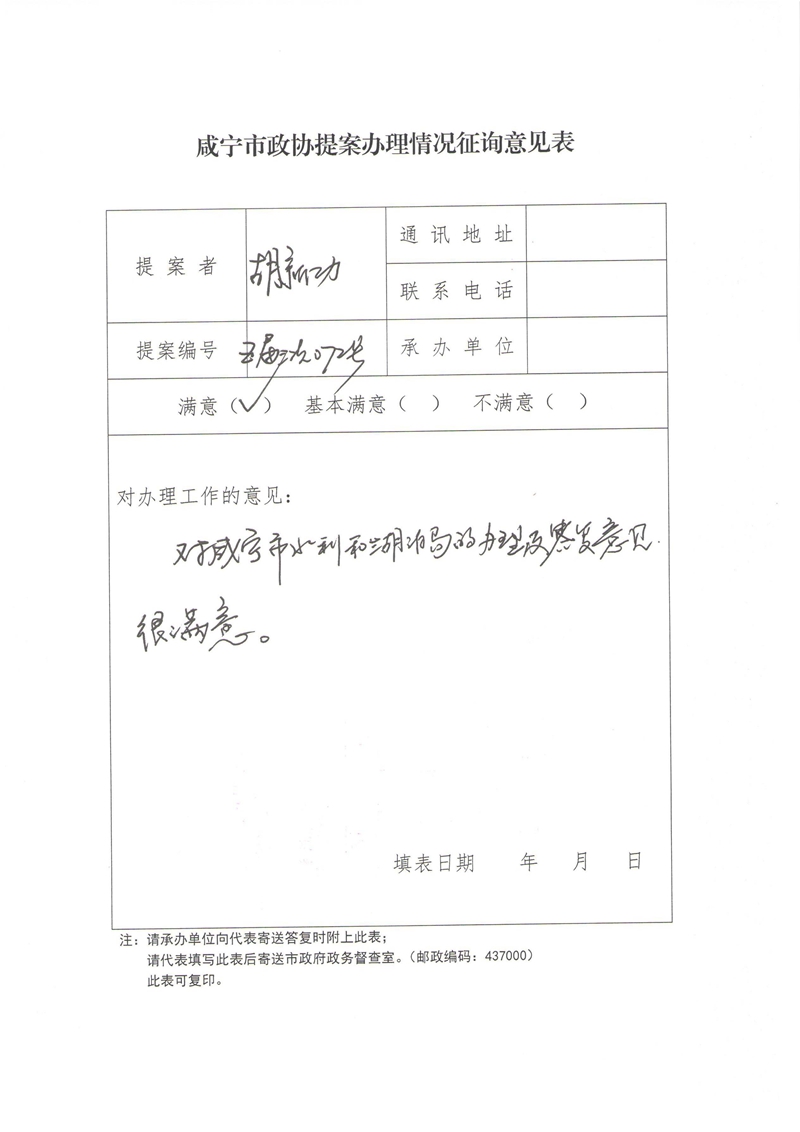 咸宁市政协提案办理情况征询意见表
提案者 胡新功 通讯地址
联系电话
提案编号 五届三次072号 承办单位
满意（✓） 基本满意（ ） 不满意（ ）
对办理工作的意见：
对咸宁市水利和湖泊局的办理及答复意见
很满意。
填表日期 年 月 日
注：请承办单位向代表寄送答复时附上此表；
请代表填写此表后寄送市政府政务督查室。（邮政编码：437000）
此表可复印。